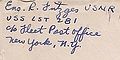 Ens. R. Fatyes USNR
USS LST 281
c/o Fleet Post Office
New York, N.Y.